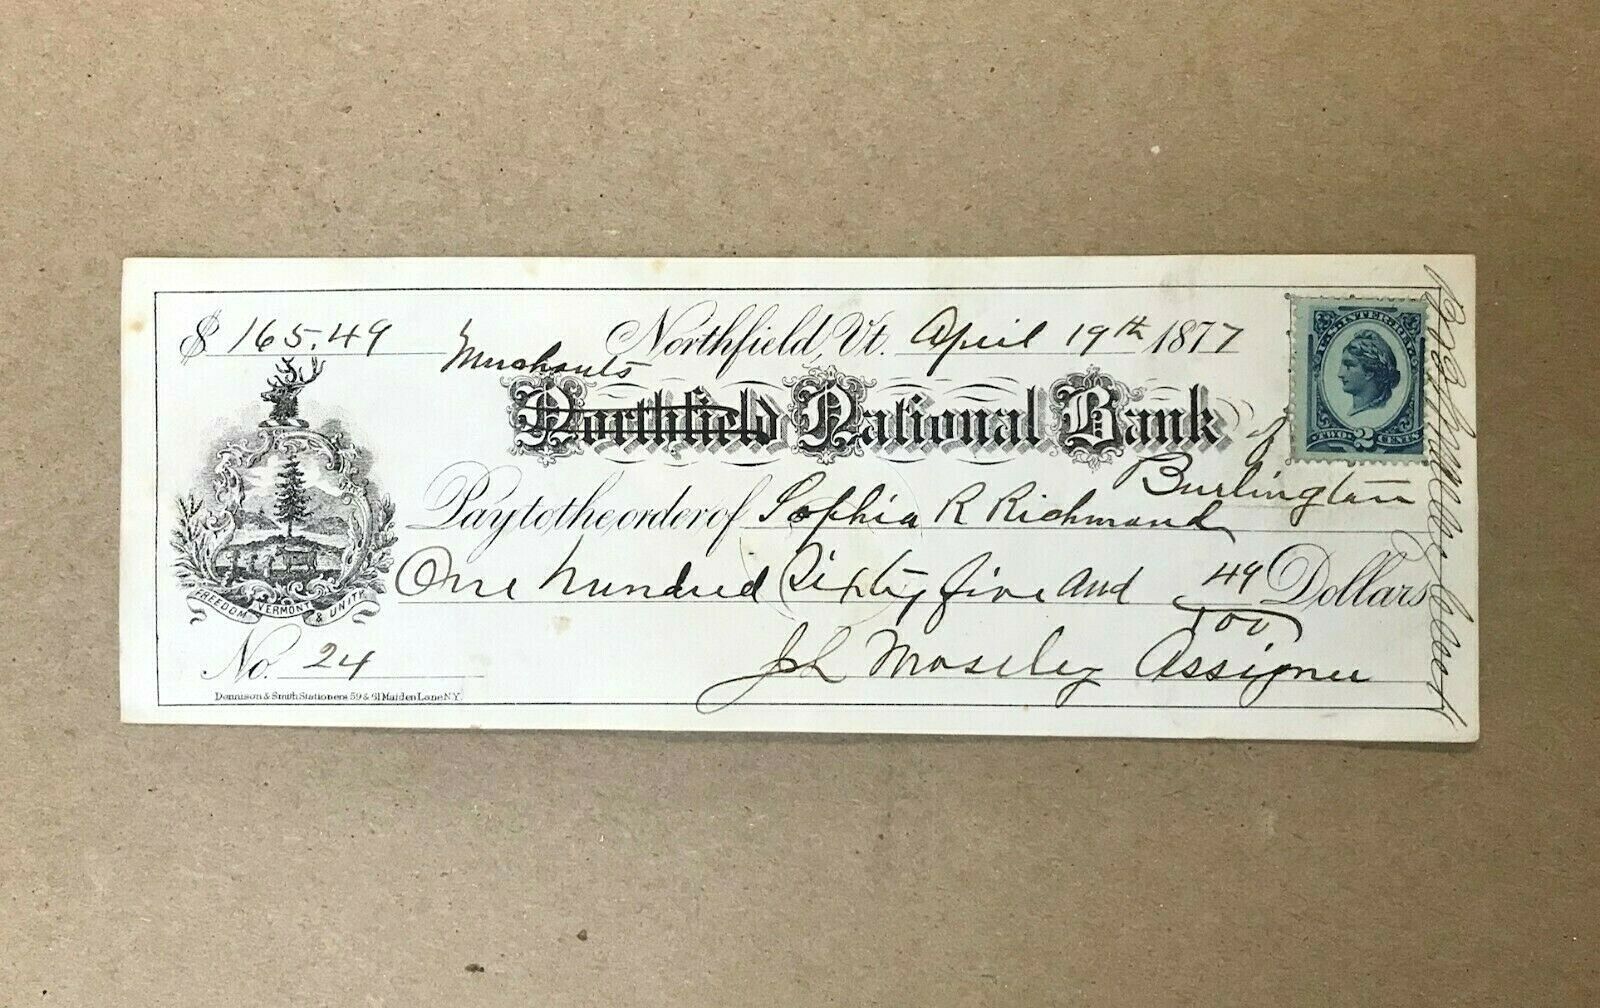 $ 165.49 Northfield, Vt. April 19th 1877
Merchants
Northfield National Bank of
Burlington
Pay to the order of Sophia R Richmond
One hundred Sixty five and 49/100 Dollars
Moseley Assignee
No. 24
Dennison & Smith Stationers 59 & 61 Maiden Lane N.Y.
FREEDOM VERMONT & UNITY
U.S. INTER. REV.
TWO 2 CENTS